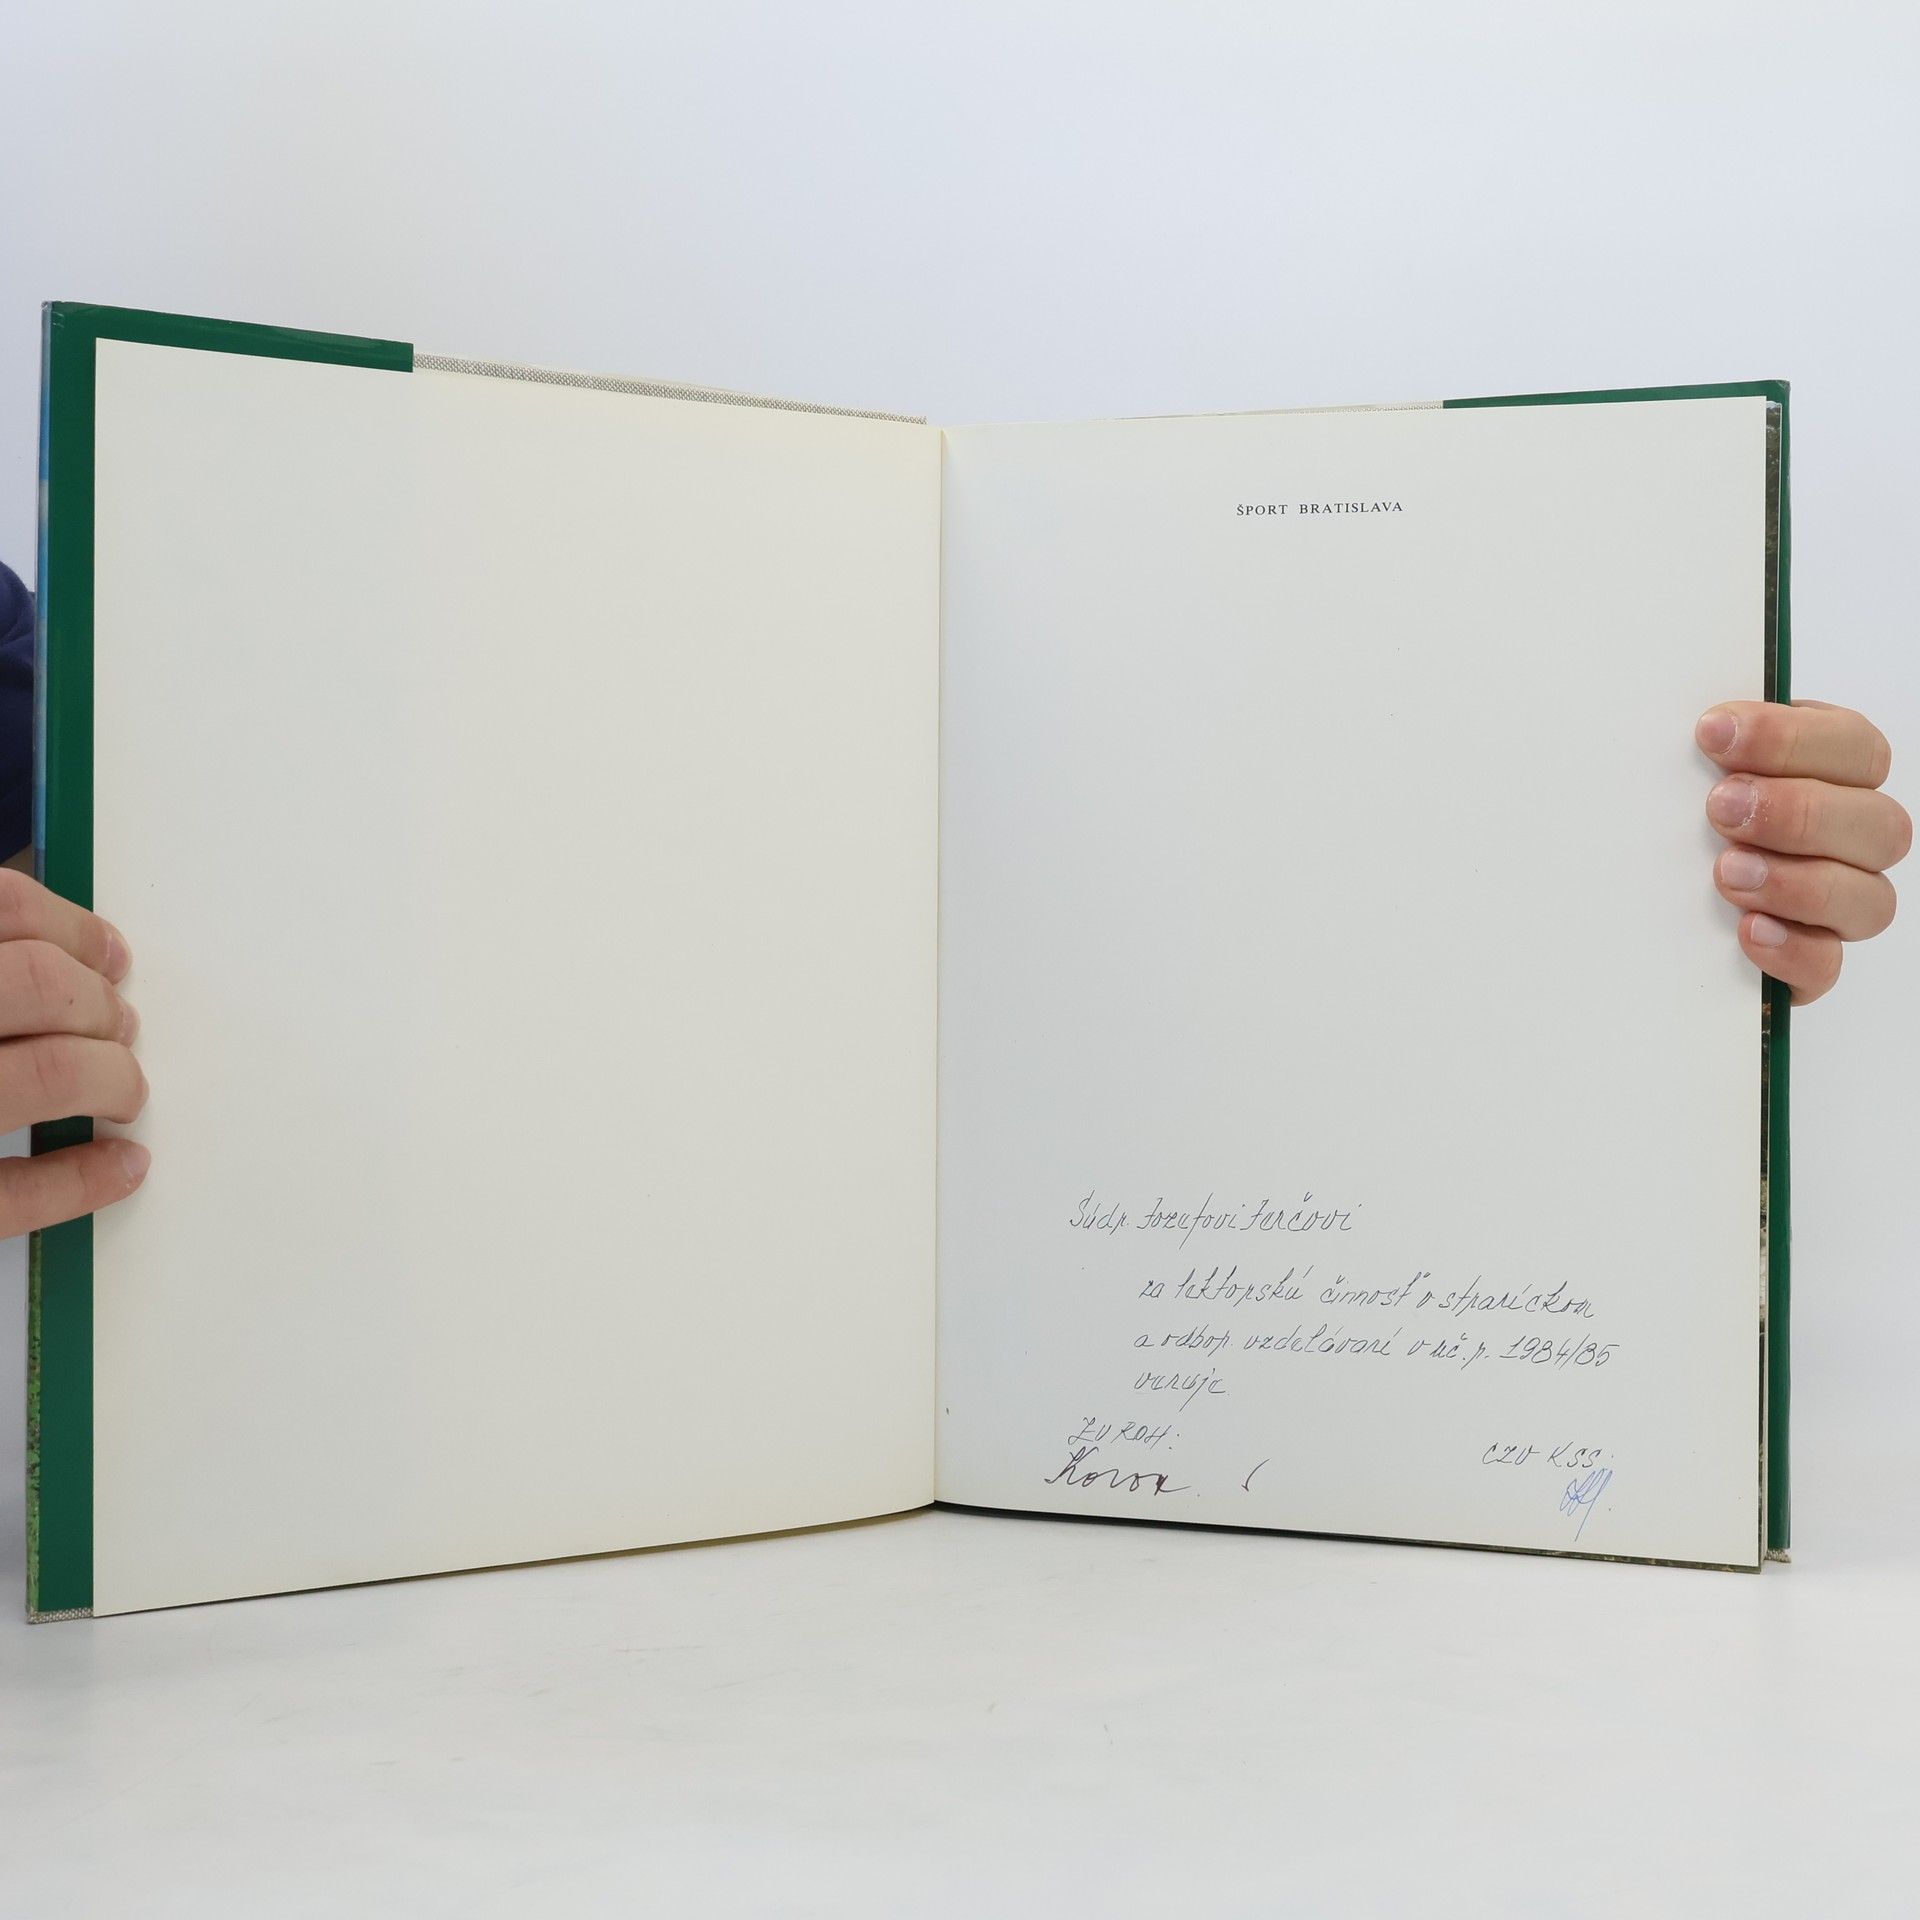 ŠPORT BRATISLAVA
Súdr. Jozefovi Ferčovi
za lektorskú činnosť v straníckom
a odbor. vzdelávaní v uč. r. 1984/85
venuje
ZV ROH:
CZV KSS: